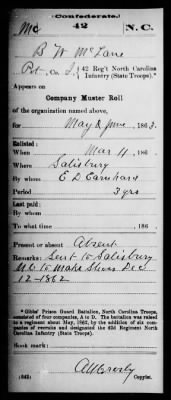 (Confederate.)
Mc 42 N.C.
B W McLane
Pvt, Co. I, 42 Reg't North Carolina
Infantry (State Troops).*
Appears on
Company Muster Roll
of the organization named above,
for May & June, 1863.
Enlisted:
When Mar 4, 186 .
Where Salisbury
By whom E D
Period 3 yrs
Last paid:
By whom
To what time , 186 .
Present or absent Absent
Remarks: Sent to Salisbury
N.C to Make Shoes Dec
12-1862
*Gibbs' Prison Guard Battalion, North Carolina Troops,
consisted of four companies, A to D. The battalion was raised
to a regiment about May, 1862, by the addition of six com-
panies of recruits and designated the 42d Regiment North
Carolina Infantry (State Troops).
Book mark:
(642)
Copyist.